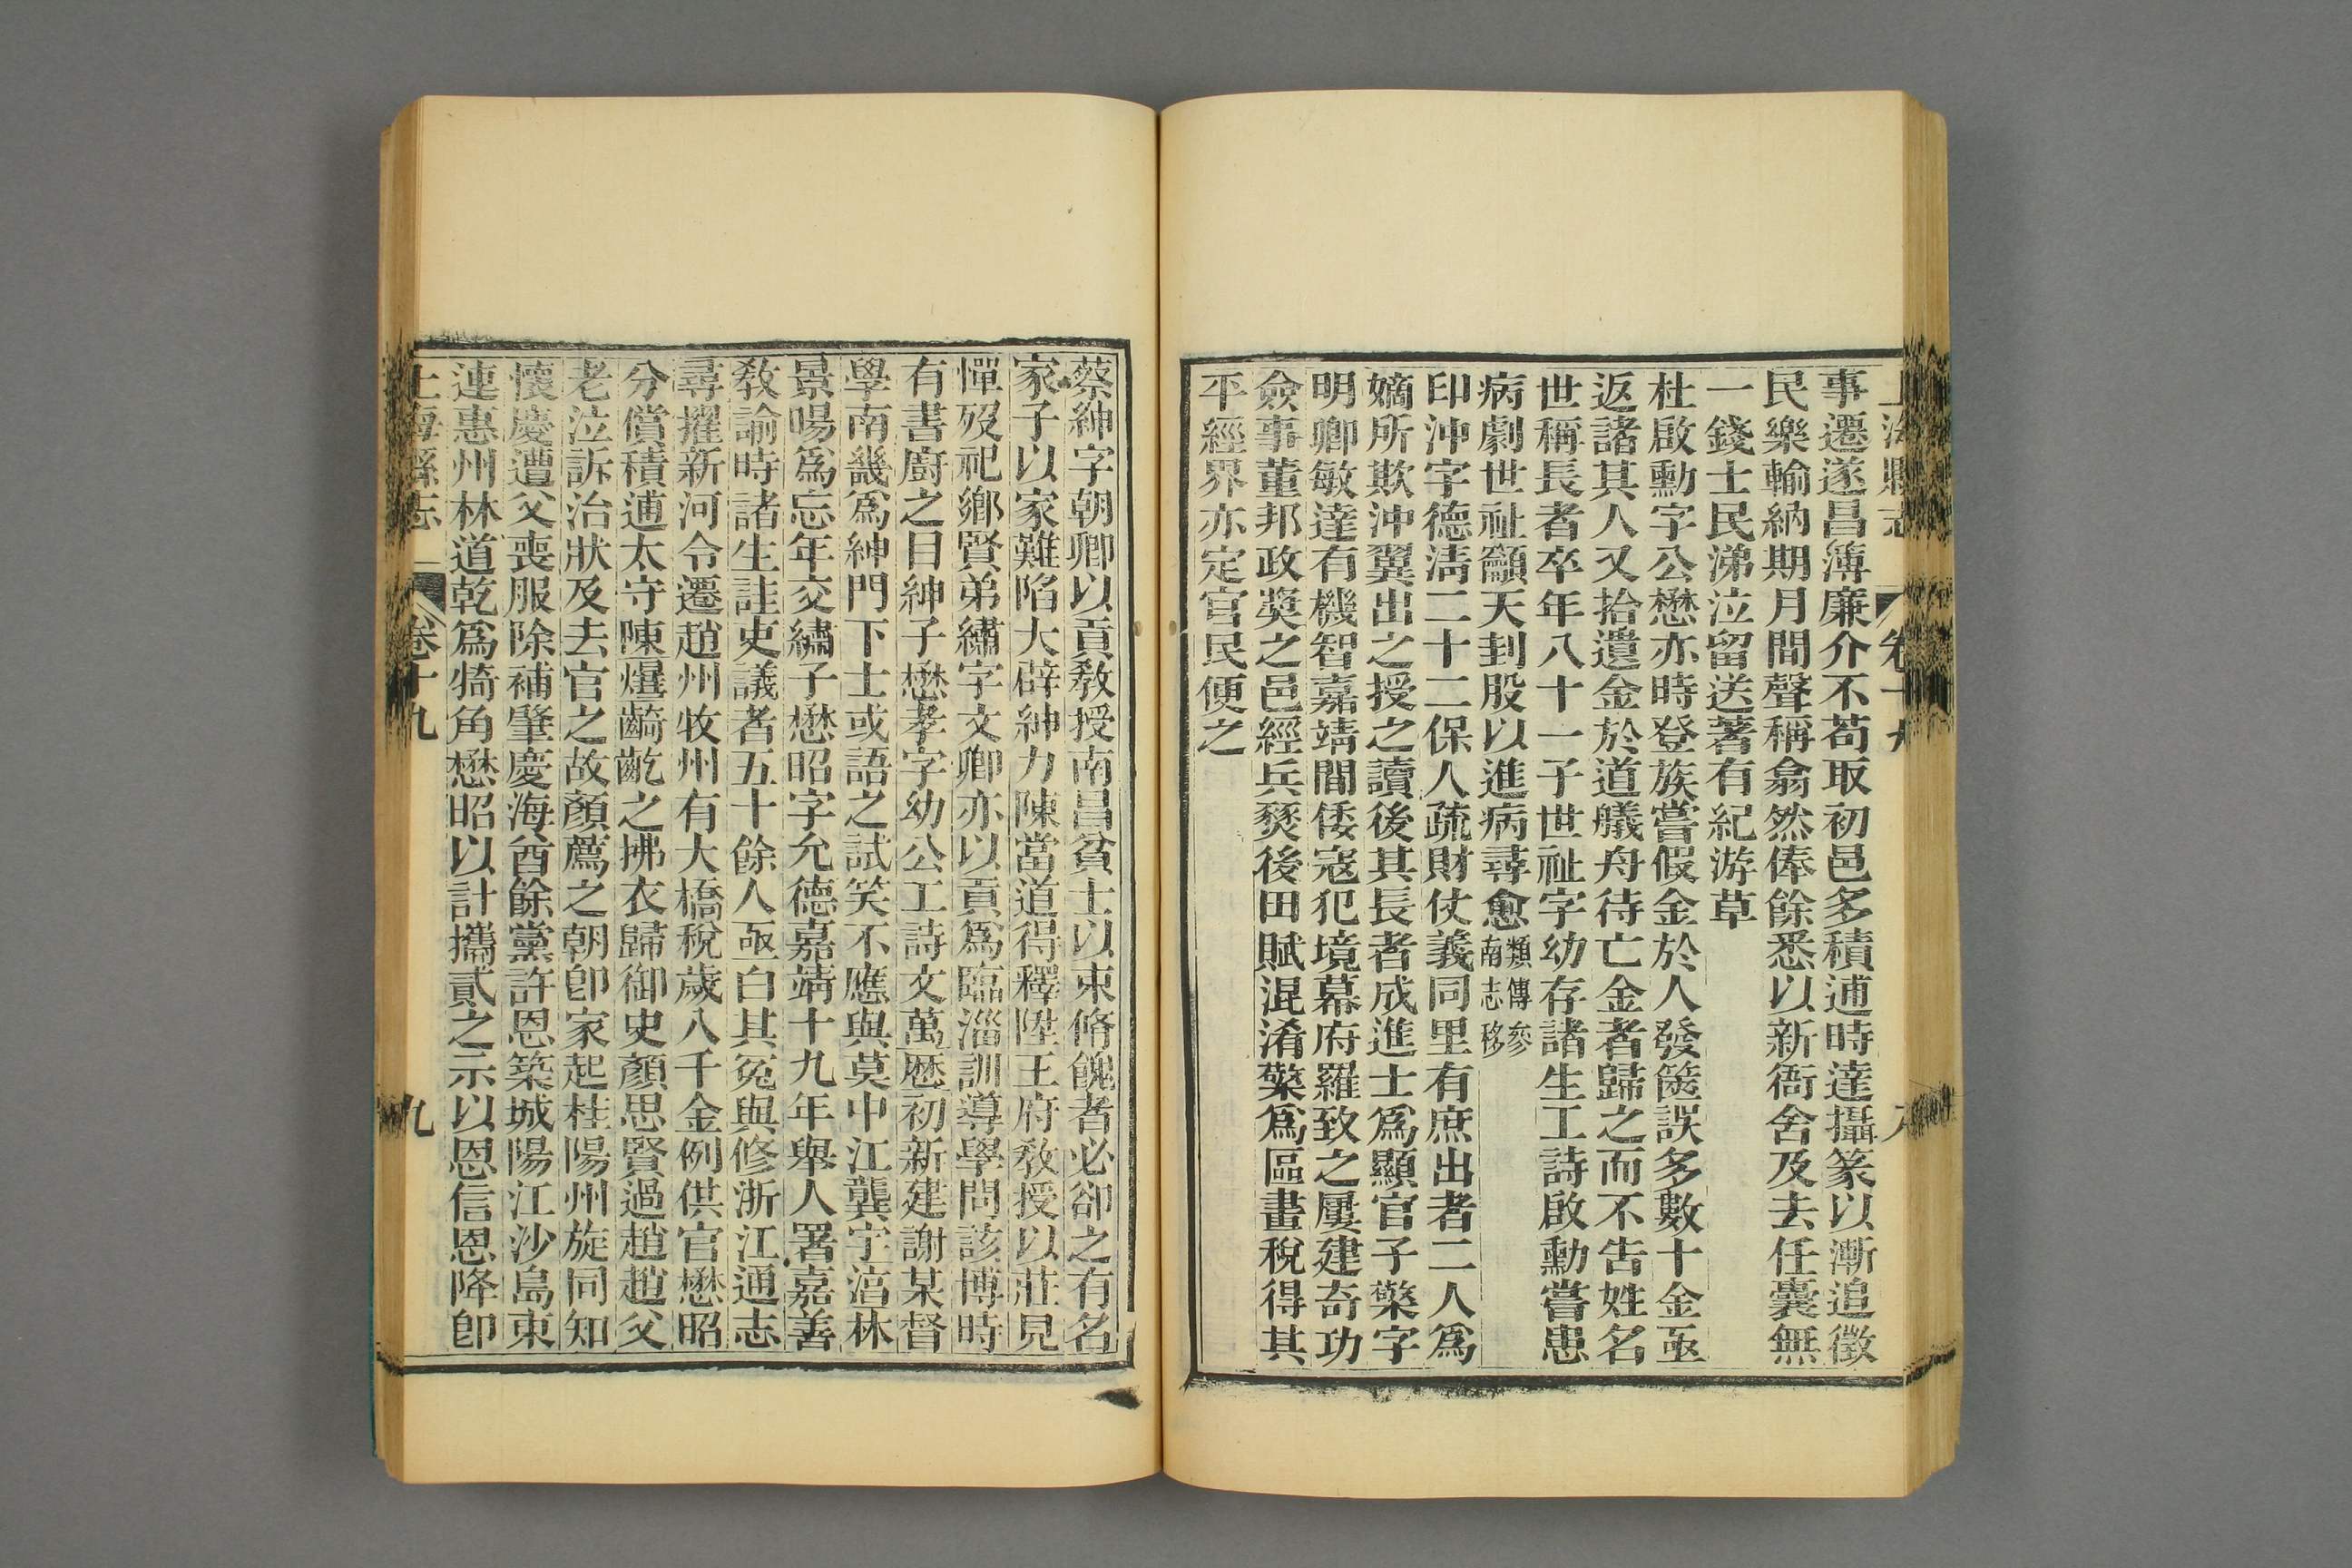 上海縣志
卷十九
八
事遷遂昌簿廉介不苟取初邑多積逋時達攝篆以漸追徵
民樂輸納期月間聲稱翕然俸餘悉以新衙舍及去任囊無
一錢士民涕泣留送著有紀游草
杜啟勳字公懋亦時登族嘗假金於人發篋誤多數十金亟
返諸其人又拾遺金於道艤舟待亡金者歸之而不告姓名
世稱長者卒年八十一子世祉字幼存諸生工詩啟勳嘗患
病劇世祉籲天刲股以進病尋愈類傳參南志移
印沖字德清二十二保人疏財仗義同里有庶出者二人爲
嫡所欺沖翼出之授之讀後其長者成進士爲顯官子檠字
明卿敏達有機智嘉靖間倭寇犯境幕府羅致之屢建奇功
僉事董邦政奬之邑經兵燹後田賦混淆檠爲區畫稅得其
平經界亦定官民便之
蔡紳字朝卿以貢敎授南昌貧士以束脩餽者必卻之有名
家子以家難陷大辟紳力陳當道得釋陞王府敎授以莊見
憚歿祀鄉賢弟繡字文卿亦以貢爲臨淄訓導學問該博時
有書廚之目紳子懋孝字幼公工詩文萬歷初新建謝某督
學南畿爲紳門下士或語之試笑不應與莫中江龔宇淯林
景暘爲忘年交繡子懋昭字允德嘉靖十九年舉人署嘉善
敎諭時諸生詿吏議者五十餘人亟白其冤與修浙江通志
尋擢新河令遷趙州牧州有大橋稅歲八千金例供官懋昭
分償積逋太守陳爟齮齕之拂衣歸御史顏思賢過趙趙父
老泣訴治狀及去官之故顏薦之朝卽家起桂陽州旋同知
懷慶遭父喪服除補肇慶海酋餘黨許恩築城陽江沙島東
連惠州林道乾爲犄角懋昭以計攜貳之示以恩信恩降卽
上海縣志
卷十九
九